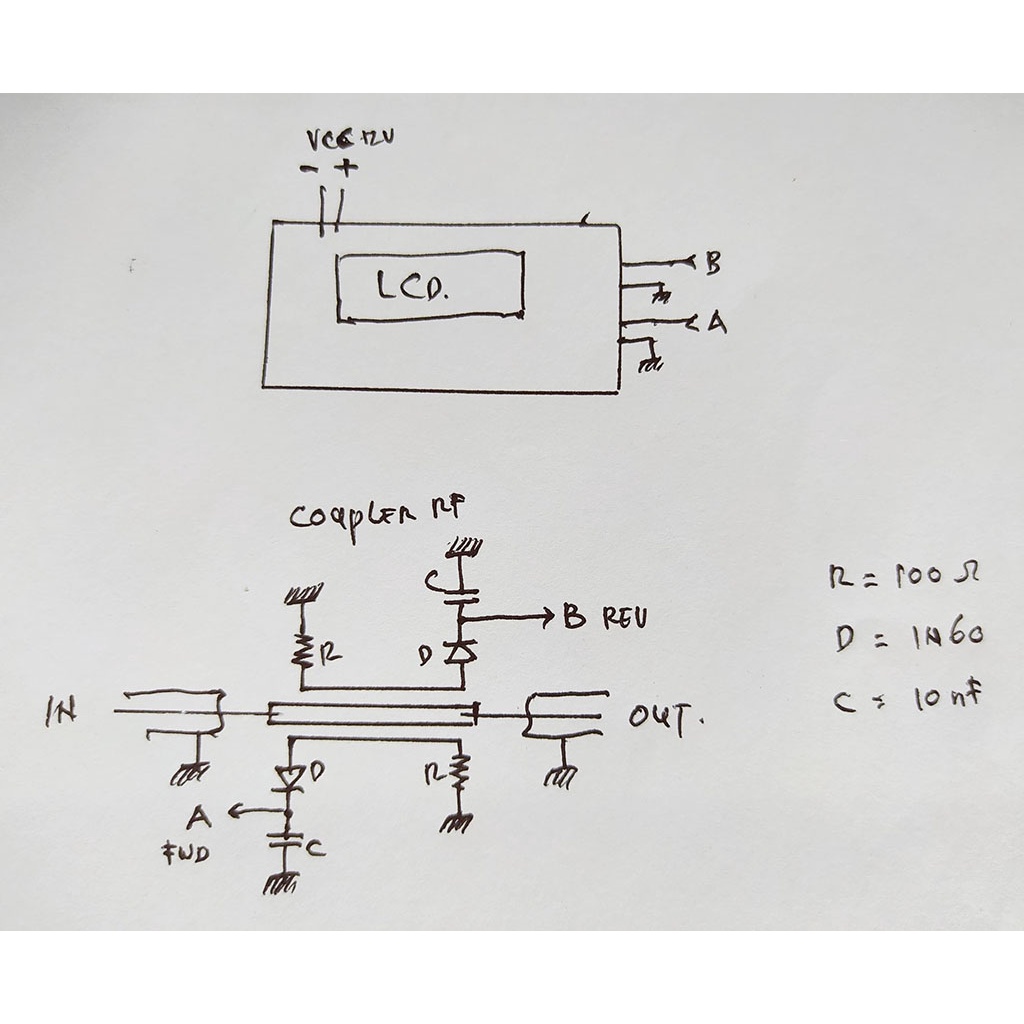 VCC 12V
- +
LCD.
B
A
COUPLER RF
C
R = 100 Ω
B REV
D = 1N60
R
D
C = 10 nF
IN
OUT.
D
R
A
C
FWD